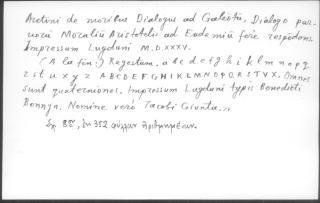 Aretini de moribus Dialogus ad Galeotū, Dialogo par-
vorū Moraliū Aristotelis ad Eudemiū fere respōdens.
Impressum Lugduni M.D.XXXV.
(A la fin:) Regestum. a b c d e f g h i k l m n o p q
r s t u x y z A B C D E F G H I K L M N O P Q R S T V X. Omnes
sunt quaterniones. Impressum Lugduni typis Benedicti
Bonnyn. Nomine verò Iacobi Giunta.»
Σχ. 8ον, ἐκ 352 φύλλων ἀριθμημένων.